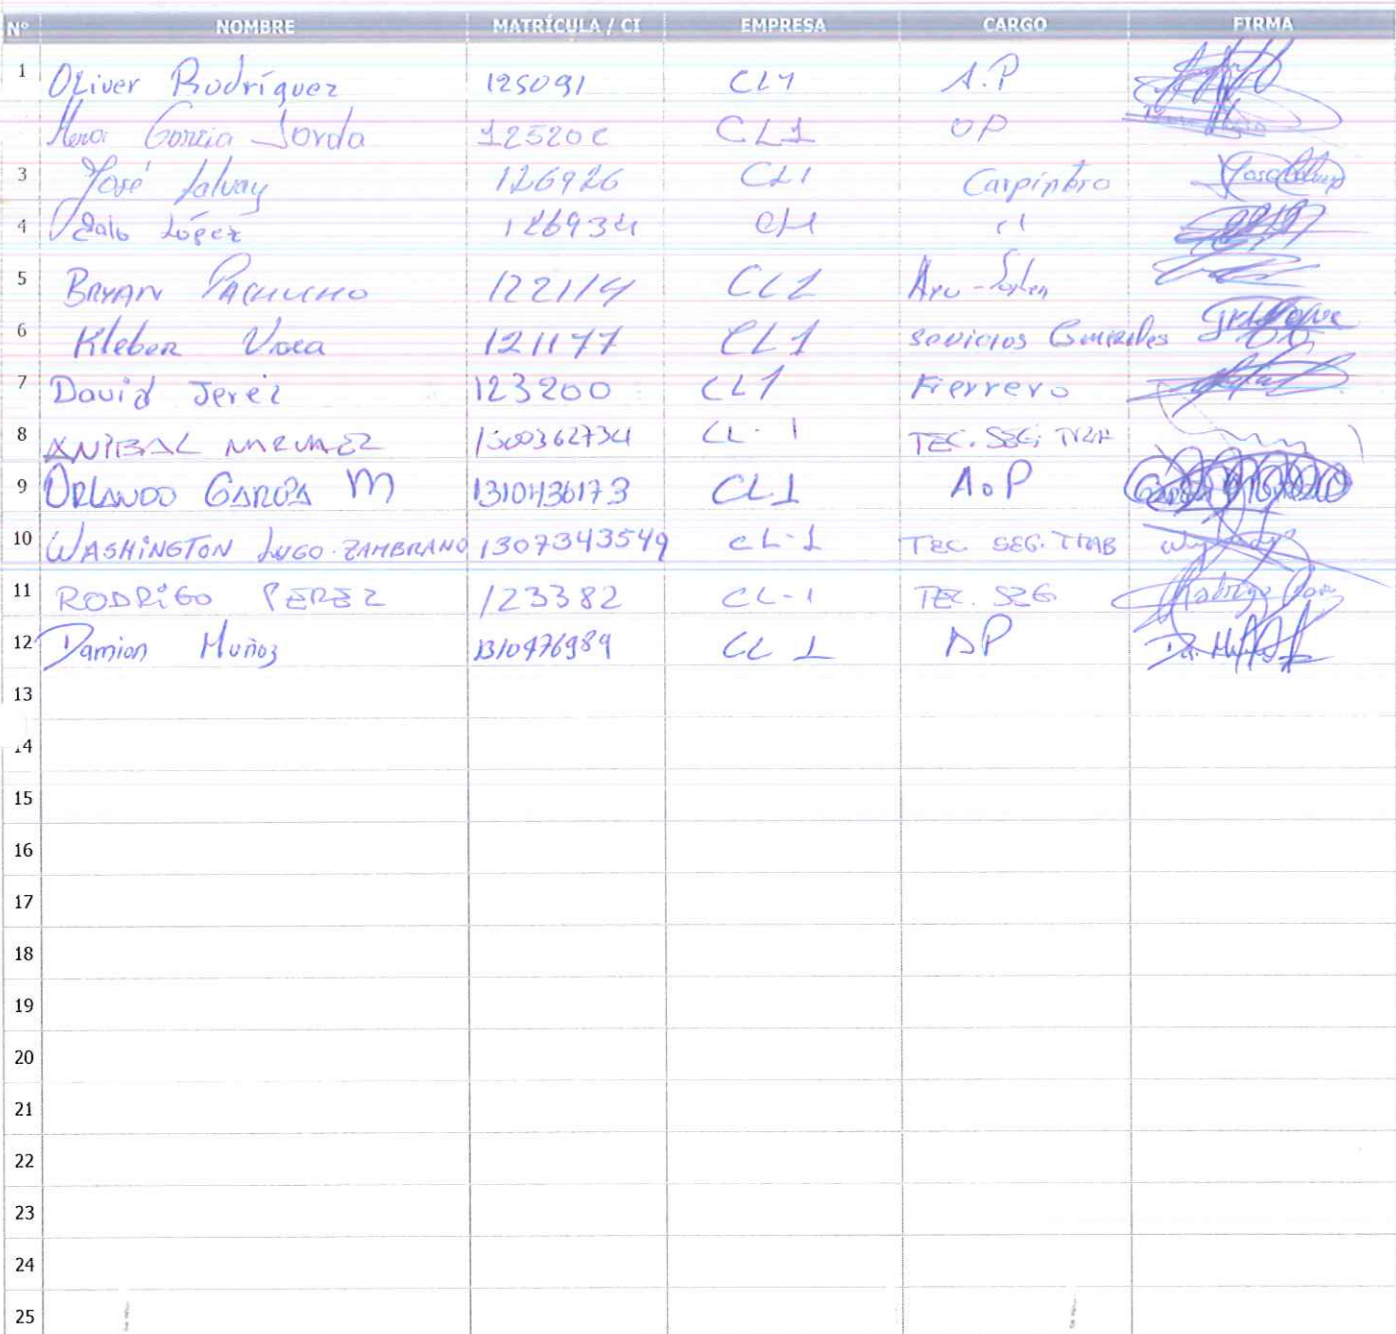 Nº NOMBRE MATRÍCULA / CI EMPRESA CARGO FIRMA
1 Oliver Rodríguez 125091 CL1 A.P
García Jorda CL1 OP
3 José 126926 CL1 Carpintero
4 López 126934 CL1
5 BRYAN PACHUCHO 122114 CL1
6 Kleber Vaca 121177 CL1
7 David Jerez 123200 CL1 Fierrero
8 ANIBAL NARVAEZ CL-1 TEC. SEG. TRAB
9 ORLANDO GARCÍA M 1310436173 CL1 A.P
10 WASHINGTON LUGO ZAMBRANO 1307343549 CL-1 TEC. SEG. TRAB
11 RODRIGO PEREZ 123382 CL-1 TEC. SEG.
12 Damian Muñoz 1310476989 CL 1 AP
13
14
15
16
17
18
19
20
21
22
23
24
25